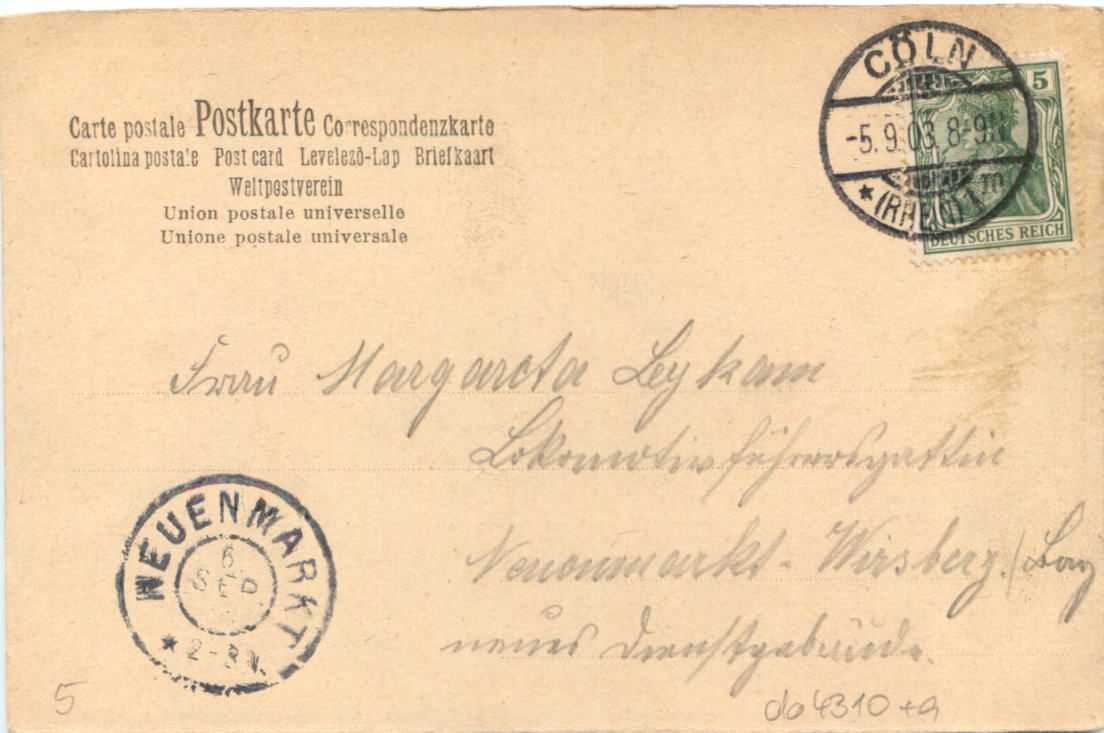 Carte postale Postkarte Correspondenzkarte
Cartolina postale Post card Levelezö-Lap Briefkaart
Weltpostverein
Union postale universelle
Unione postale universale
CÖLN
-5. 9. 03. 8-9N
* (RHEIN) 1 m
5
DEUTSCHES REICH
Frau Margareta Leykam
Lokomotivführersgattin
Neuenmarkt-Wirsberg./Bay
neues Dienstgebäude.
NEUENMARKT
6
SEP
* 2-3 N.
5
do4310+a